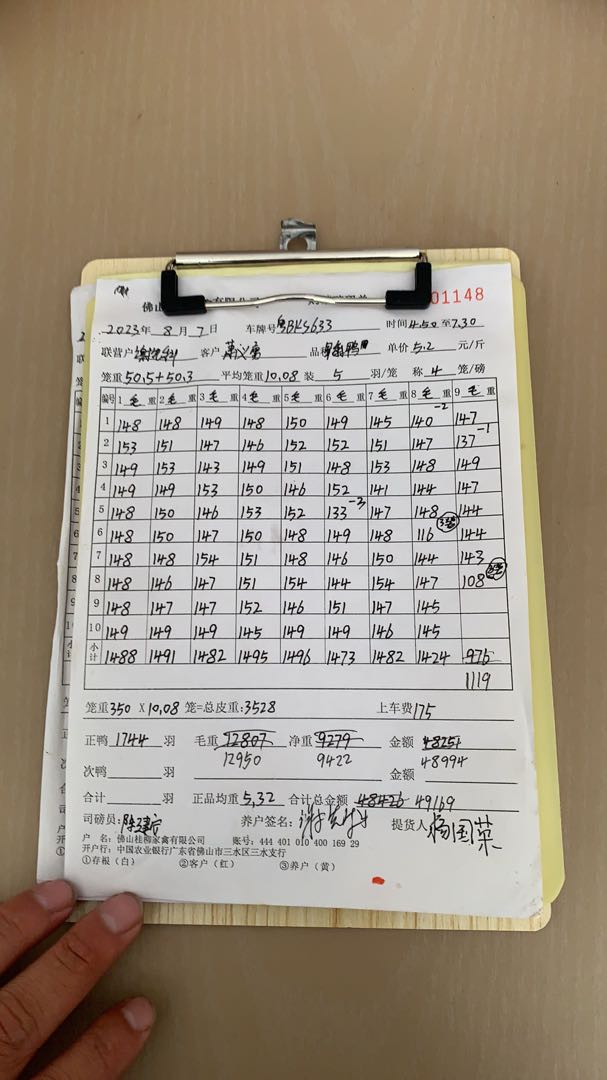 佛山
01148
2023年 8月 7日 车牌号 粤BKS633 时间 4.50 至 7.30
联营户 客户 品种 单价 5.2 元/斤
笼重 50.5+50.3 平均笼重 10.08 装 5 羽/笼 称 4 笼/磅
编号 1 毛 重 2 毛 重 3 毛 重 4 毛 重 5 毛 重 6 毛 重 7 毛 重 8 毛 重 9 毛 重
1 148 148 149 148 150 149 145 140 -2 147
2 153 151 147 146 152 152 151 147 137 -1
3 149 153 143 149 151 148 153 148 149
4 149 149 153 150 146 152 141 144 147
5 148 150 146 153 152 133 -3 147 148 144
6 148 150 147 150 148 149 148 116 144
7 148 148 154 151 148 146 150 144 143
8 148 146 147 151 154 144 154 147 108
9 148 147 147 152 146 151 147 145
10 149 149 149 145 149 149 146 145
小计 1488 1491 1482 1495 1496 1473 1482 1424 976
1119
笼重 350 X 10.08 笼=总皮重: 3528 上车费 175
正鸭 1744 羽 毛重 12807 净重 9279 金额 48251
12950 9422 48994
次鸭 羽 金额
合计 羽 正品均重 5.32 合计总金额 48426 49169
司磅员: 养户签名: 提货人 杨国菜
户 名: 佛山桂柳家禽有限公司 账号: 444 401 010 400 169 29
开户行: 中国农业银行广东省佛山市三水区三水支行
①存根（白） ②客户（红） ③养户（黄）